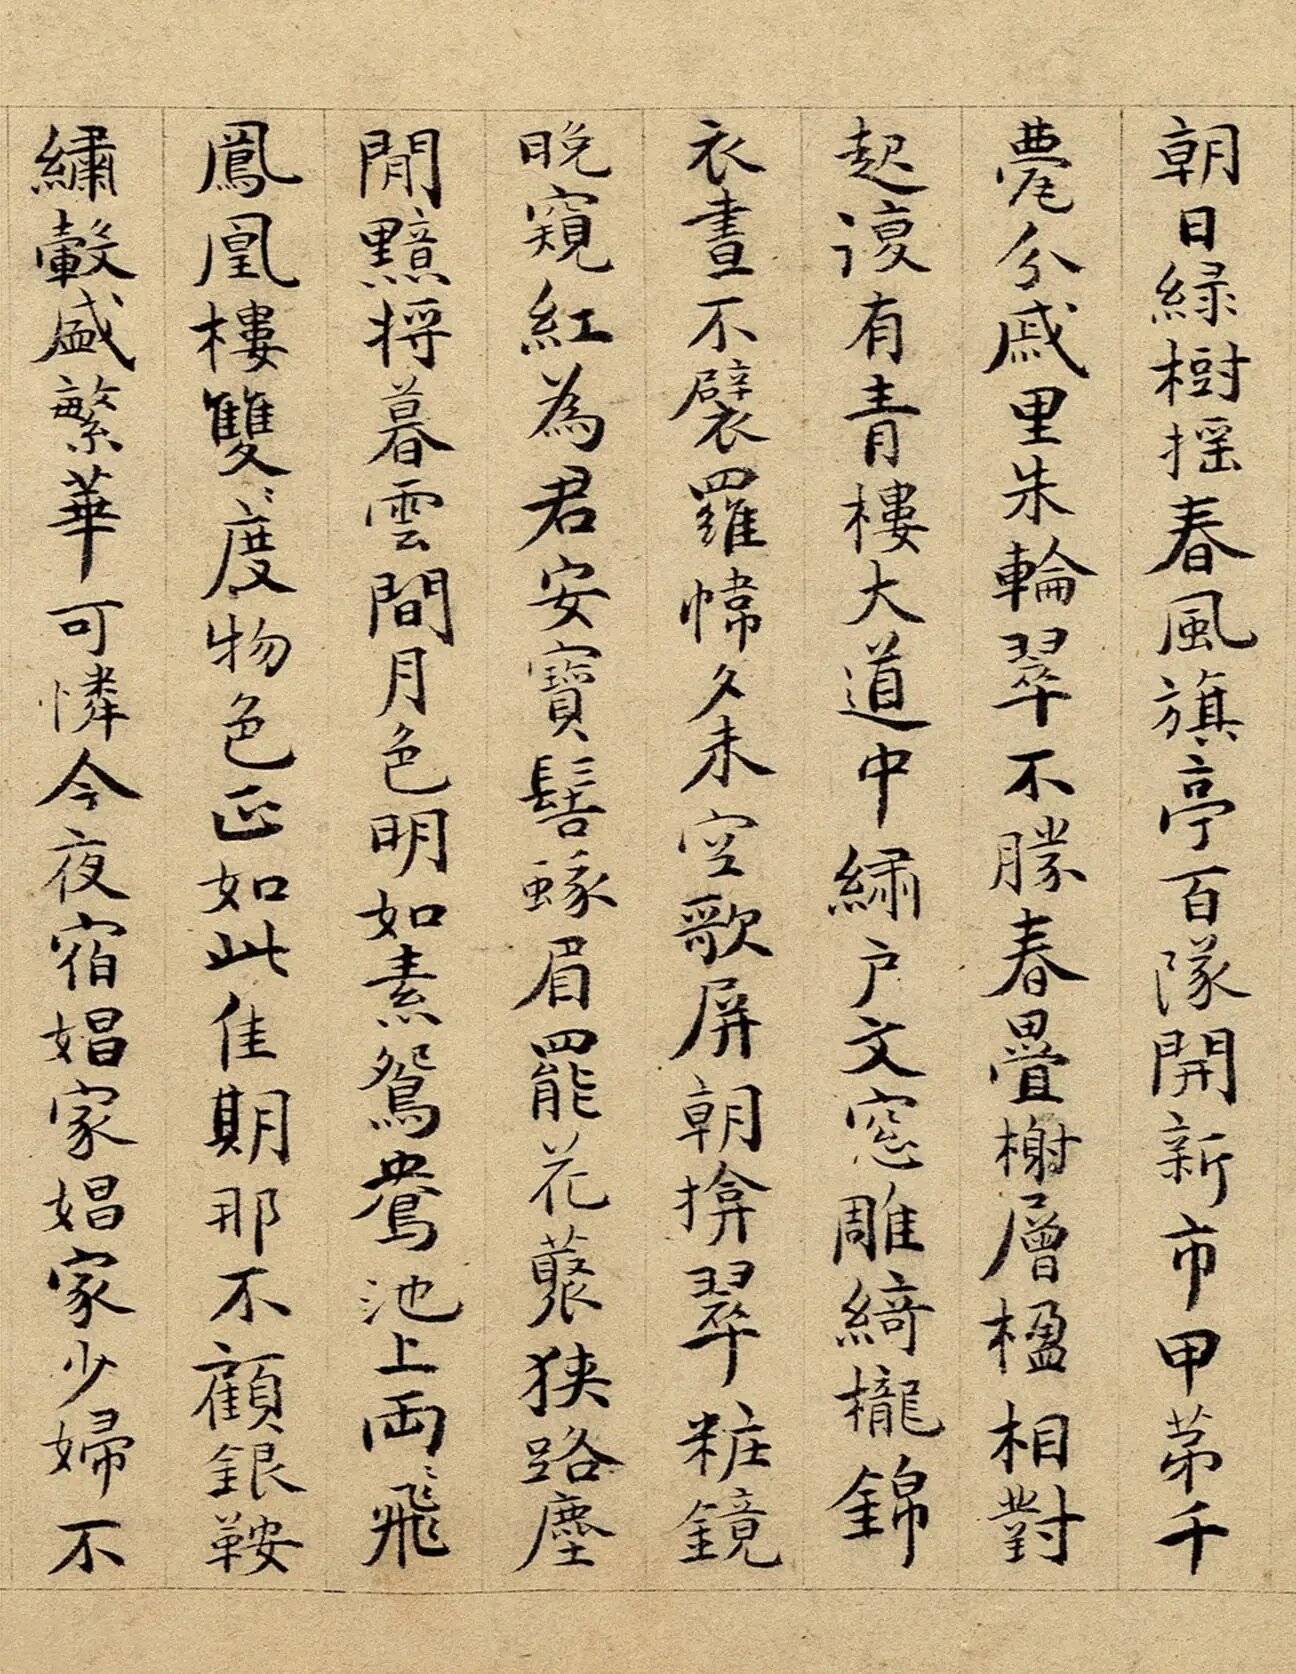 朝日緑樹揺春風旗亭百隊開新市甲苐千
甍分戚里朱輪翠不勝春疊榭層楹相對
起復有青樓大道中綉户文窓雕綺櫳錦
衣晝不襞羅幃夕未空歌屏朝揜翠粧鏡
晚窺紅為君安寶髻蛾眉罷花藂狭路塵
間黯将暮雲間月色明如素鴛鴦池上兩〻飛
鳳凰樓雙〻度物色正如此佳期那不顧銀鞍
繡轂盛繁華可憐今夜宿娼家娼家少婦不